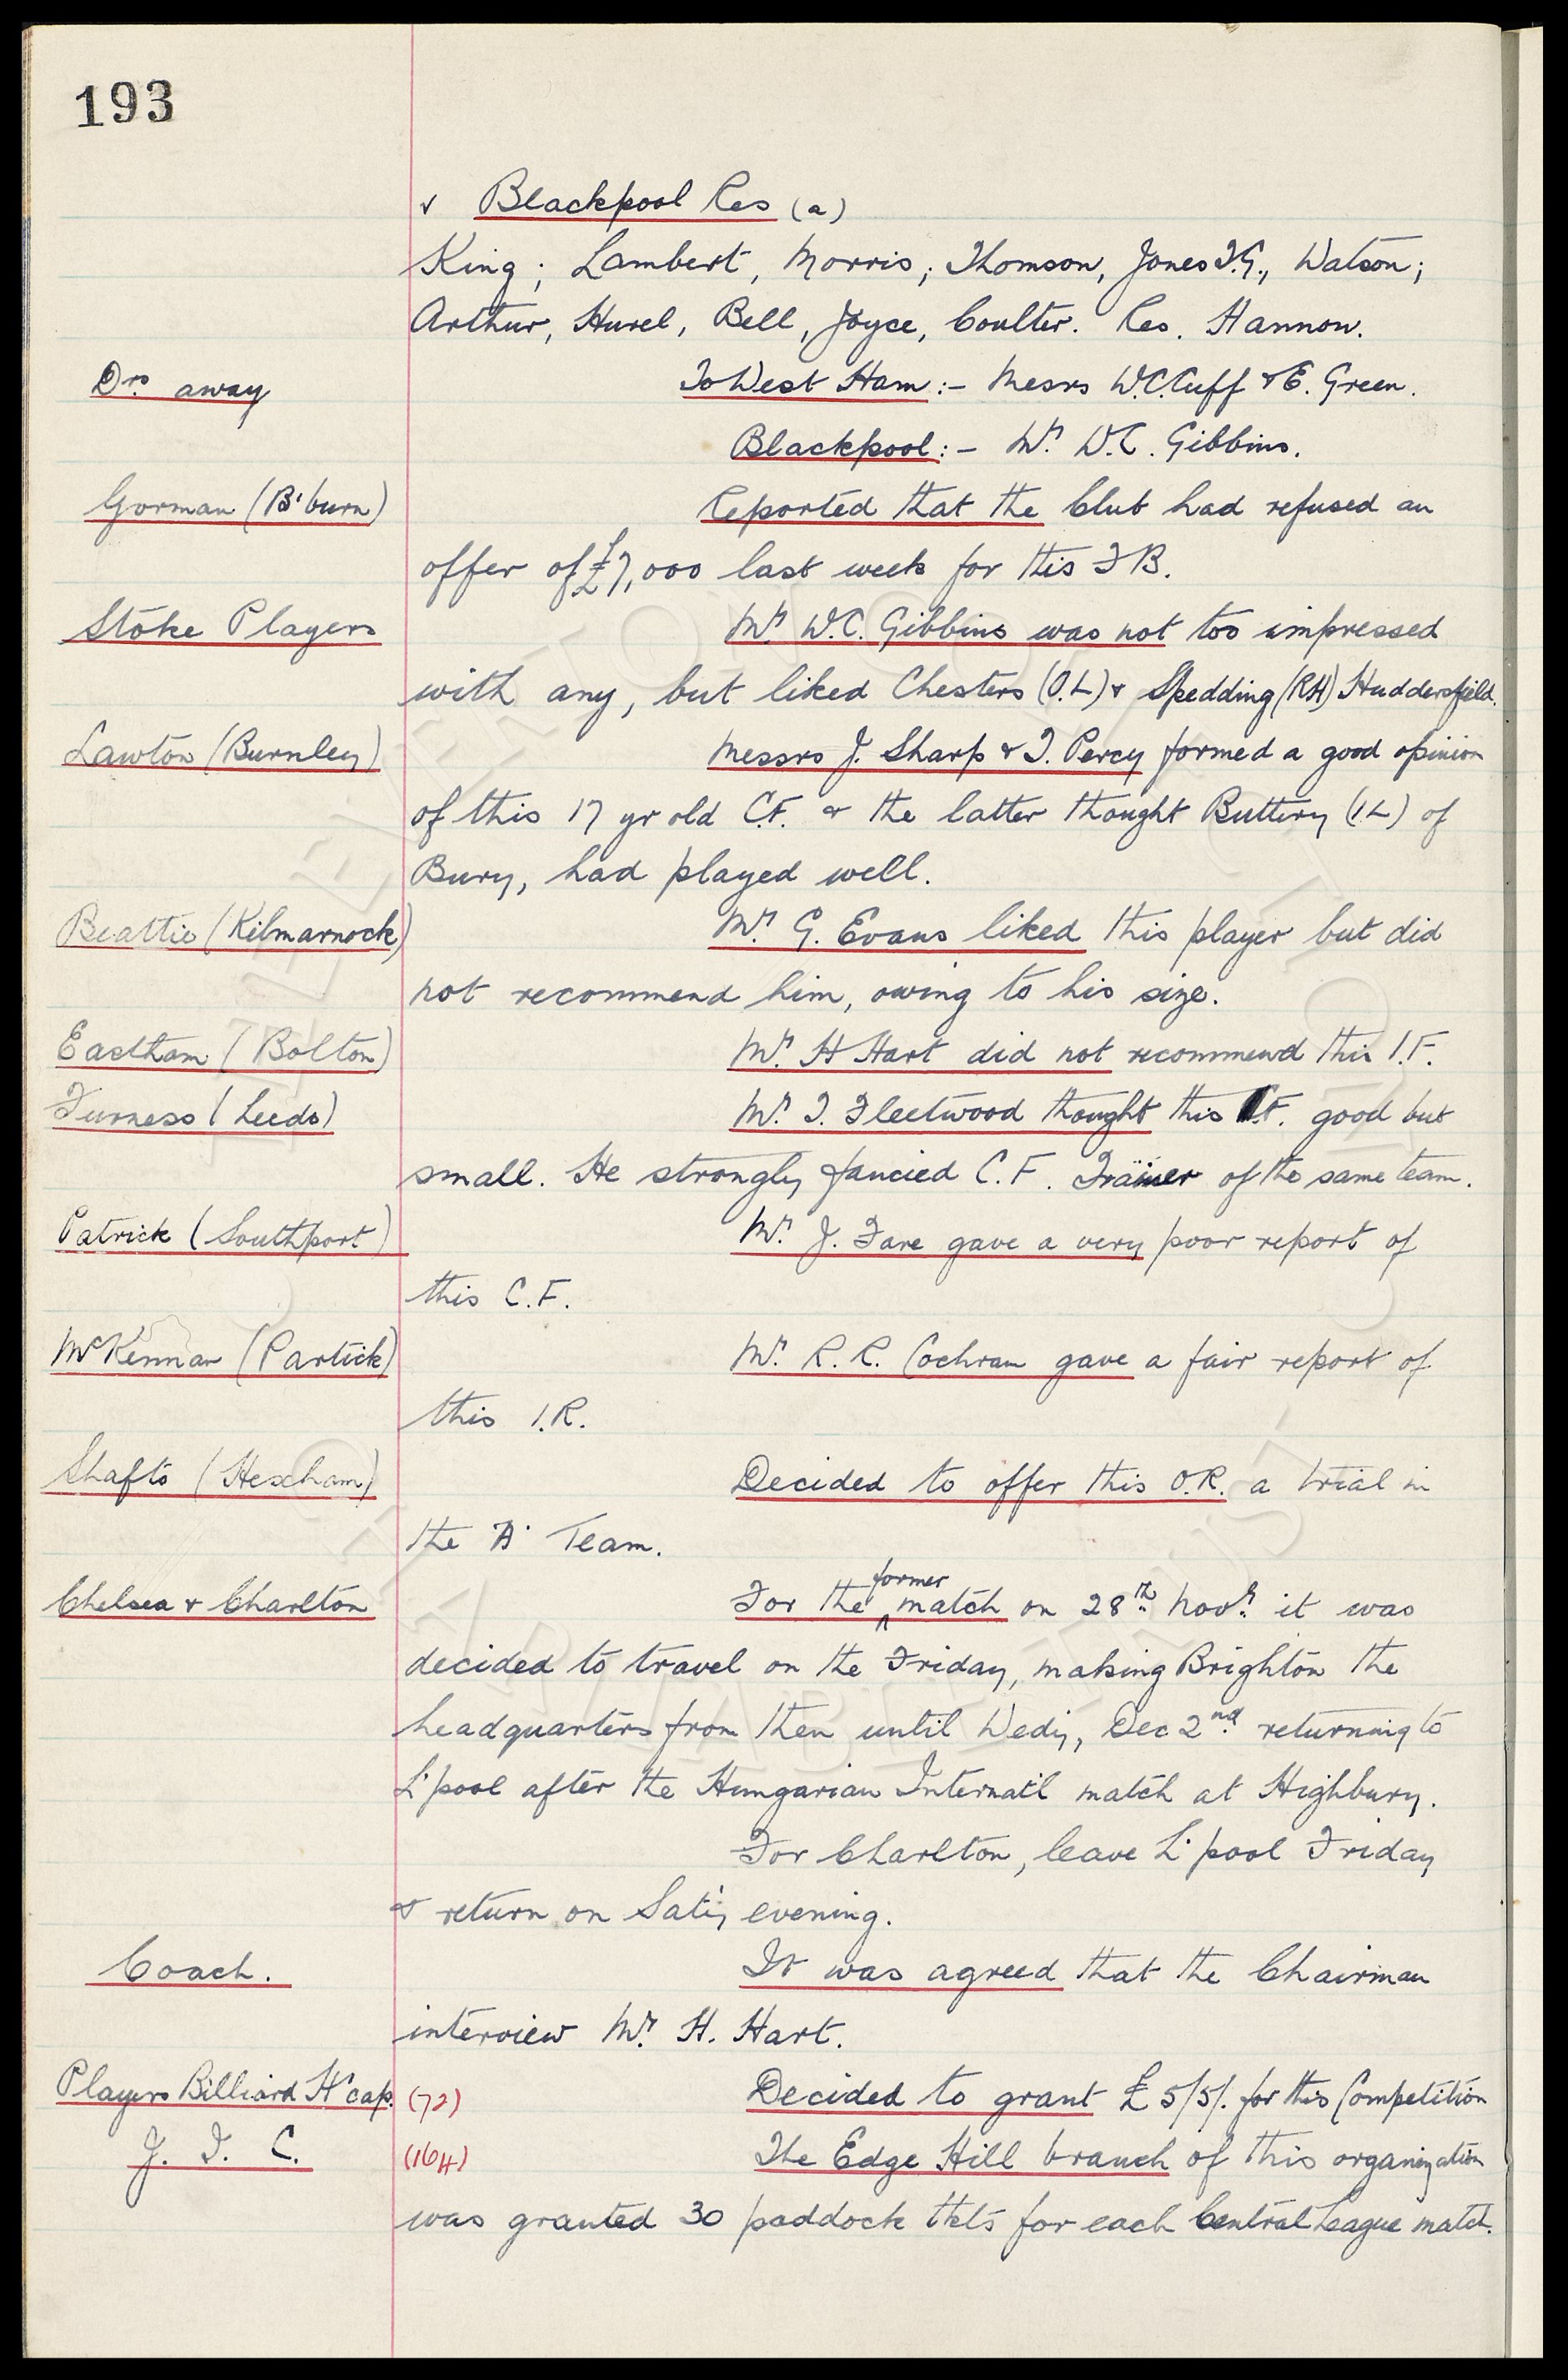 193
v Blackpool Res (a)
King; Lambert, Morris; Thomson, Jones T.G., Watson;
Arthur, Hurel, Bell, Joyce, Coulter. Res. Hannon.
Drs. away To West Ham:- Messrs W.C. Cuff & E. Green.
Blackpool:- Mr. W.C. Gibbins.
Gorman (B'burn) Reported that the Club had refused an
offer of £7,000 last week for this F B.
Stoke Players Mr. W.C. Gibbins was not too impressed
with any, but liked Chesters (O.L) & Spedding (RH) Huddersfield.
Lawton (Burnley) Messrs J. Sharp & T. Percy formed a good opinion
of this 17 yr old C.F. & the latter thought Buttery (I.L) of
Bury, had played well.
Beattie (Kilmarnock) Mr. G. Evans liked this player but did
not recommend him, owing to his size.
Eastham (Bolton) Mr. H Hart did not recommend this I.F.
Furness (Leeds) Mr. T. Fleetwood thought this I.F. good but
small. He strongly fancied C.F. Trainer of the same team.
Patrick (Southport) Mr. J. Fare gave a very poor report of
this C.F.
McKennan (Partick) Mr. R. R. Cochran gave a fair report of
this I.R.
Shafto (Hexham) Decided to offer this O.R. a trial in
the 'A' Team.
Chelsea & Charlton For the former match on 28th. Novr. it was
decided to travel on the Friday, making Brighton the
headquarters from then until Wedy, Dec 2nd. returning to
L'pool after the Hungarian Internat'l match at Highbury.
For Charlton, leave L'pool Friday
& return on Sat'y evening.
Coach. It was agreed that the Chairman
interview Mr. H. Hart.
Players Billiard H'cap. (72) Decided to grant £5/5/. for this Competition
J. T. C. (164) The Edge Hill branch of this organization
was granted 30 paddock tkts for each Central League match.